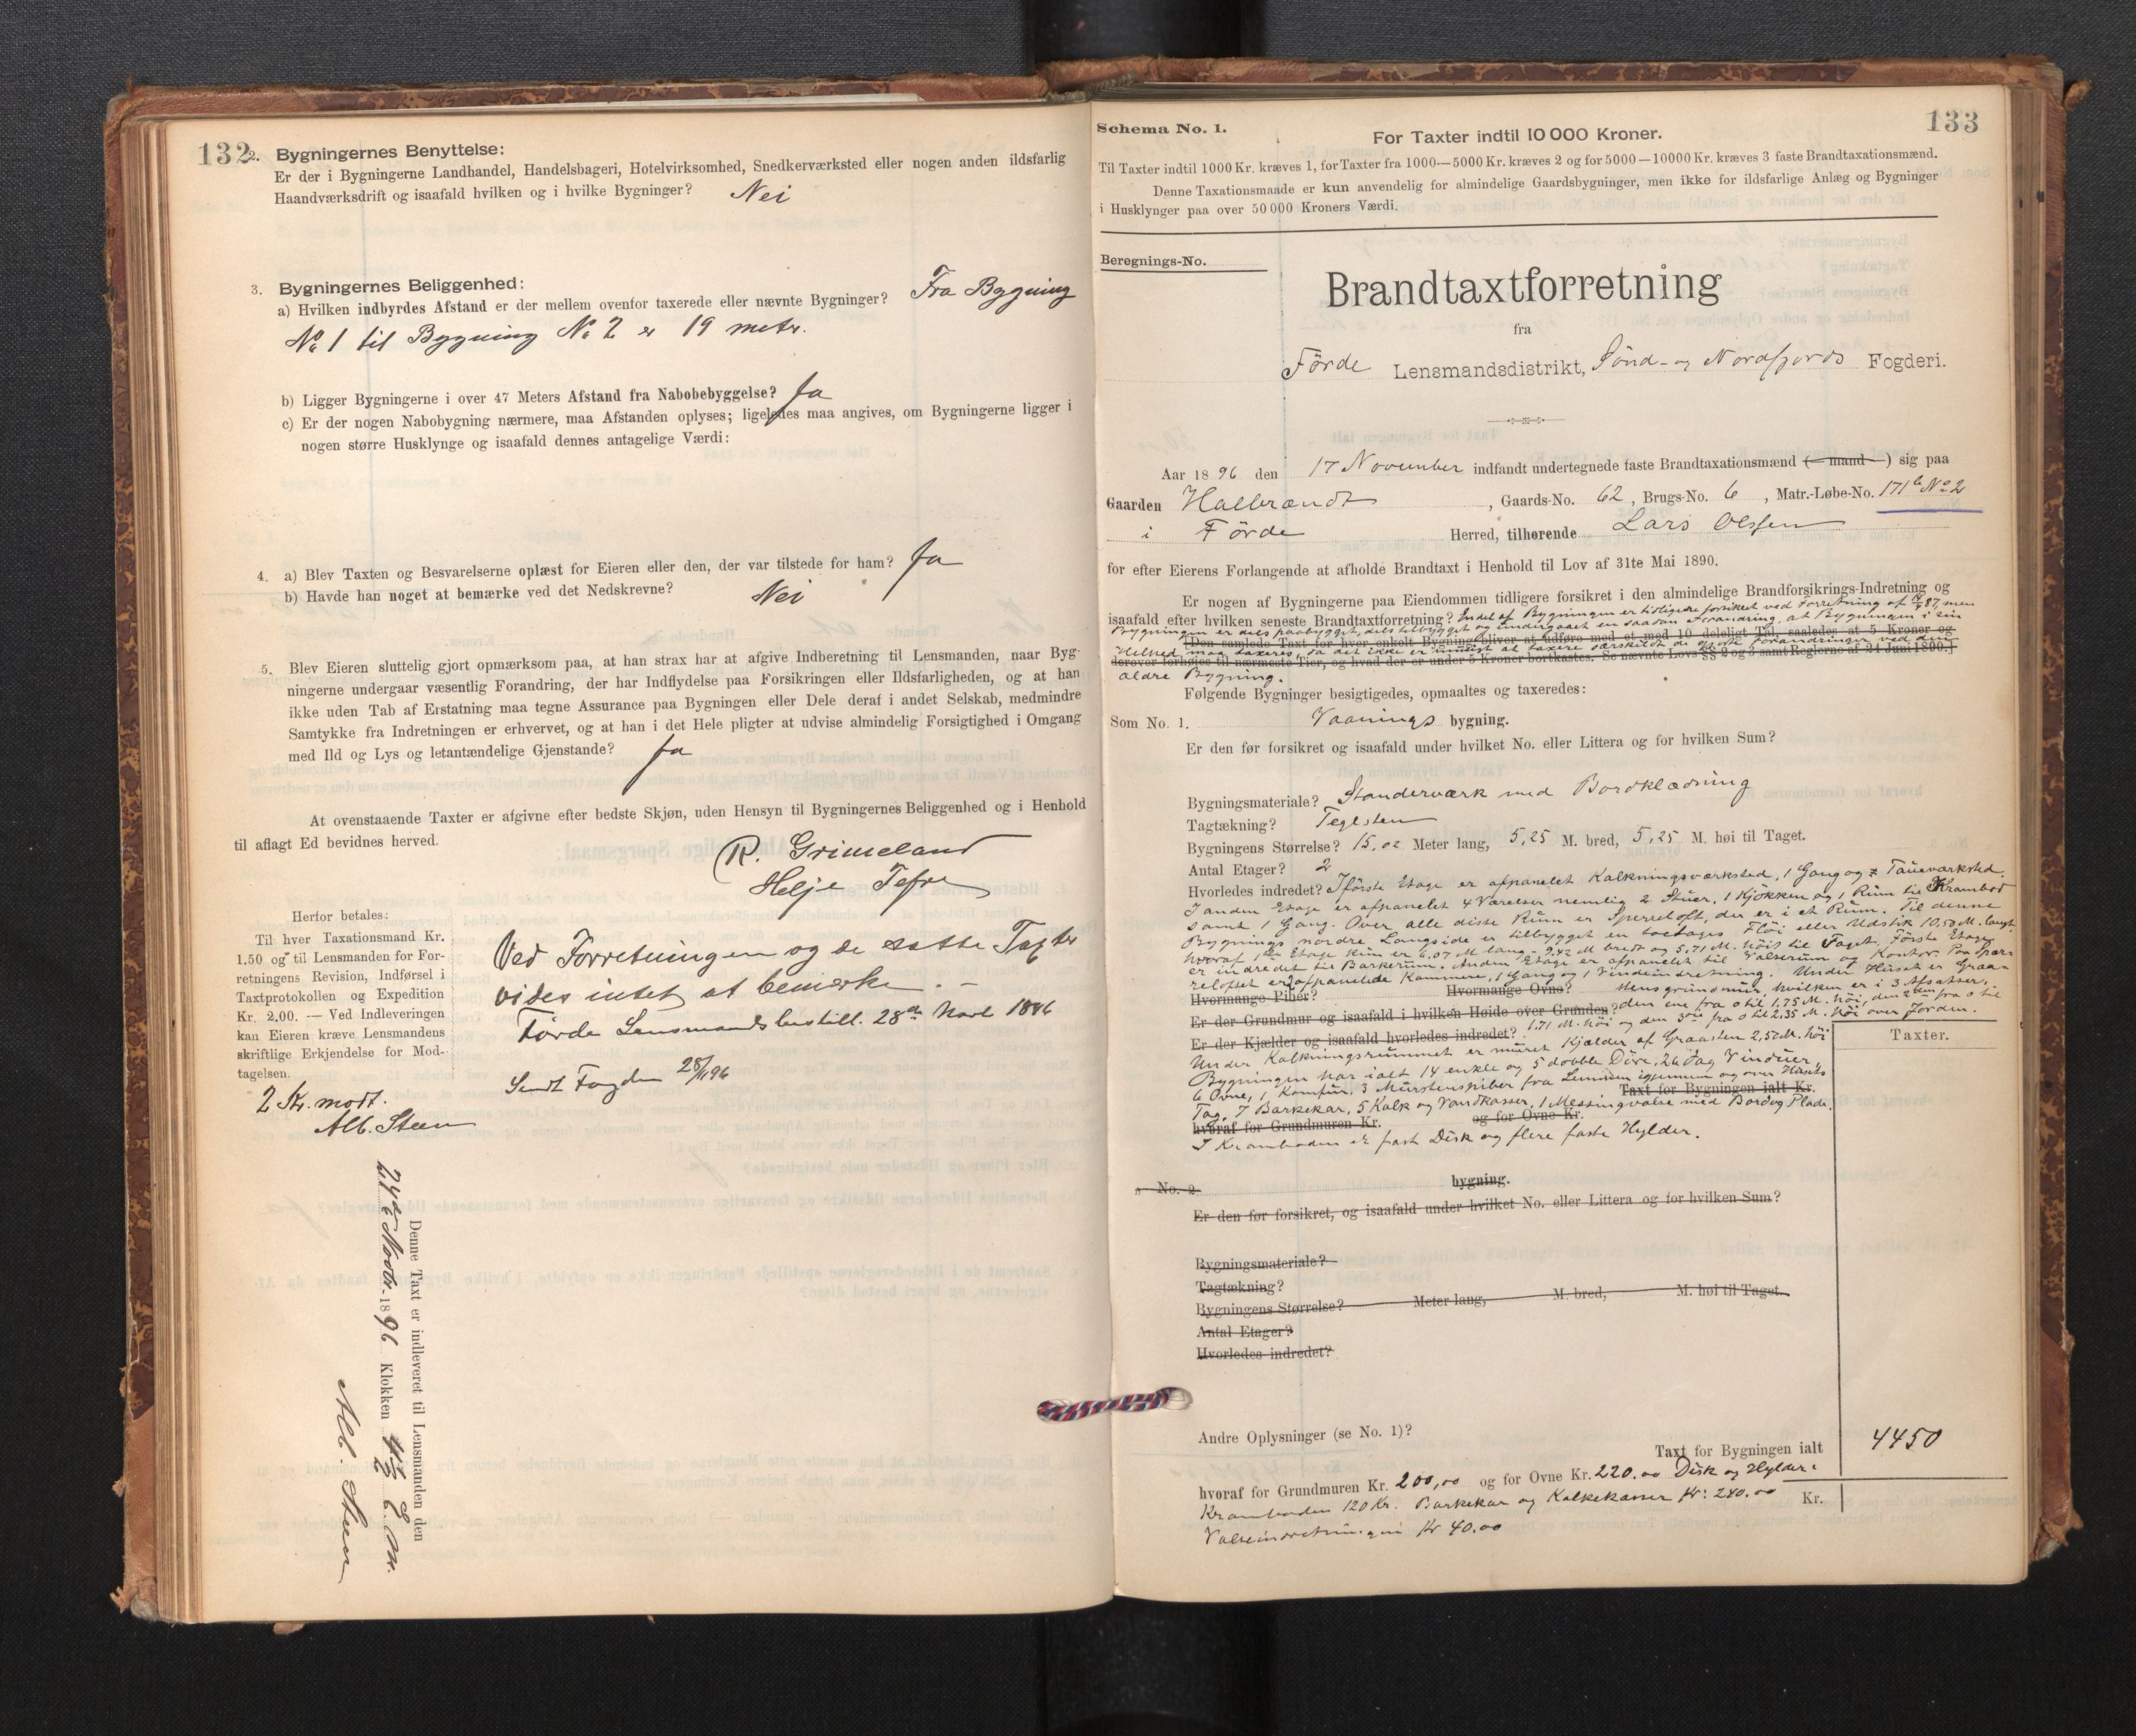 132
2. Bygningernes Benyttelse:
Er der i Bygningerne Landhandel, Handelsbageri, Hotelvirksomhed, Snedkerværksted eller nogen anden ildsfarlig
Haandværksdrift og isaafald hvilken og i hvilke Bygninger? Nei
3. Bygningernes Beliggenhed:
a) Hvilken indbyrdes Afstand er der mellem ovenfor taxerede eller nævnte Bygninger? Fra Bygning
No 1 til Bygning No 2 er 19 metr.
b) Ligger Bygningerne i over 47 Meters Afstand fra Nabobebyggelse? Ja
c) Er der nogen Nabobygning nærmere, maa Afstanden oplyses; ligeledes maa angives, om Bygningerne ligger i
nogen større Husklynge og isaafald dennes antagelige Værdi:
4. a) Blev Taxten og Besvarelserne oplæst for Eieren eller den, der var tilstede for ham? Ja
b) Havde han noget at bemærke ved det Nedskrevne? Nei
5. Blev Eieren sluttelig gjort opmærksom paa, at han strax har at afgive Indberetning til Lensmanden, naar Byg-
ningerne undergaar væsentlig Forandring, der har Indflydelse paa Forsikringen eller Ildsfarligheden, og at han
ikke uden Tab af Erstatning maa tegne Assurance paa Bygningen eller Dele deraf i andet Selskab, medmindre
Samtykke fra Indretningen er erhvervet, og at han i det Hele pligter at udvise almindelig Forsigtighed i Omgang
med Ild og Lys og letantændelige Gjenstande? Ja
At ovenstaaende Taxter er afgivne efter bedste Skjøn, uden Hensyn til Bygningernes Beliggenhed og i Henhold
til aflagt Ed bevidnes herved.
R. Grimeland
Helje Tefre
Herfor betales:
Til hver Taxationsmand Kr.
1.50 og til Lensmanden for For-
retningens Revision, Indførsel i
Taxtprotokollen og Expedition
Kr. 2.00. — Ved Indleveringen
kan Eieren kræve Lensmandens
skriftlige Erkjendelse for Mod-
tagelsen.
2 Kr. modt.
Alb. Steen
Ved Forretningen og de satte Taxter
vides intet at bemærke. –
Förde Lensmandsbestill. 28de Novb 1896
Sendt Fogden 28/11 96
Denne Taxt er indleveret til Lensmanden den
24de Novbr. 1896 Klokken 4½ E. M.
Alb. Steen
133
Schema No. 1.
For Taxter indtil 10 000 Kroner.
Til Taxter indtil 1000 Kr. kræves 1, for Taxter fra 1000—5000 Kr. kræves 2 og for 5000—10000 Kr. kræves 3 faste Brandtaxationsmænd.
Denne Taxationsmaade er kun anvendelig for almindelige Gaardsbygninger, men ikke for ildsfarlige Anlæg og Bygninger
i Husklynger paa over 50 000 Kroners Værdi.
Beregnings-No.
Brandtaxtforretning
fra
Förde Lensmandsdistrikt, Sönd- og Nordfjords Fogderi.
Aar 1896 den 17 November indfandt undertegnede faste Brandtaxationsmænd (— mand —) sig paa
Gaarden Halbrændt, Gaards-No. 62, Brugs-No. 6, Matr.-Løbe-No. 171b No 2
i Förde Herred, tilhørende Lars Olssen
for efter Eierens Forlangende at afholde Brandtaxt i Henhold til Lov af 31te Mai 1890.
Er nogen af Bygningerne paa Eiendommen tidligere forsikret i den almindelige Brandforsikrings-Indretning og
isaafald efter hvilken seneste Brandtaxtforretning? Endel af Bygningen er tidligere forsikret ved Forretning af 87, men
Bygningen er dels paabygget, dels tilbygget og undergaaet en saadan Forandring, at Bygningen i sin
(Den samlede Taxt for hver enkelt Bygning bliver at udføre med et med 10 deleligt Tal, saaledes at 5 Kroner og
Helhed maa taxeres, da det ikke er muligt at taxere særskildt de gjorte Forandringer ved den
derover forhøies til nærmeste Tier, og hvad der er under 5 Kroner bortkastes. Se nævnte Lovs §§ 2 og 3 samt Reglerne af 24 Juni 1890.)
ældre Bygning.
Følgende Bygninger besigtigedes, opmaaltes og taxeredes:
Som No. 1. Vaanings bygning.
Er den før forsikret og isaafald under hvilket No. eller Littera og for hvilken Sum?
Bygningsmateriale? Standerværk med Bordklædning
Tagtækning? Teglsten
Bygningens Størrelse? 15,02 Meter lang, 5,25 M. bred, 5,25 M. høi til Taget.
Antal Etager? 2
Hvorledes indredet? I förste Etage er afpanelet Kalkningsværksted, 1 Gang og Taueværksted.
I anden Etage er afpanelet 4 Værelser nemlig 2 Stuer, 1 Kjökken og 1 Rum til Krambod
samt 1 Gang. Over alle disse Rum er Spereloft, der er i et Rum. Til denne
Bygnings nordre Langside er tilbygget en toetages Flöi eller Udstik 10,50 M. langt,
hvoraf 1ste Etage Rum er 6,07 M lang, 9,42 M bredt og 5,71 M. höit til Taget. Förste Etage
er indredet til Barkerum. Anden Etage er afpanelet til Valserum og Kontor. Paa Spær-
reloftet er 2 afpanelede Kammere, 1 Gang og 1 Vindeindretning. Under Huset er Graa-
Hvormange Piber? Hvormange Ovne? stensgrundmur, hvilken er i 3 Afsatser,
Er der Grundmur og isaafald i hvilken Høide over Grunden? den ene fra 0 til 1,75 M. höi, den 2den fra 0 til
Er der Kjælder og isaafald hvorledes indredet? 1,71 M. höi og den 3die fra 0 til 2,35 M. höi over Jorden.
Under Kalkningsrummet er muret Kjælder af Graasten 2,57 M. höi
Bygningen har ialt 14 enkle og 5 dobble Döre, 26 Fag Vinduer,
6 Ovne, 1 Komfur, 3 Murstenspiber fra Lunnen igjennem og over Husets
Taxt for Bygningen ialt Kr.
Tag. 7 Barkekar, 5 Kalk og Vandkasser, 1 Messingvalse med Bord og Plade.
hvoraf for Grundmuren Kr. og for Ovne Kr.
I Kramboden er fast Disk og flere faste Hylder.
Taxter.
» No. 2. bygning.
Er den før forsikret, og isaafald under hvilket No. eller Littera og for hvilken Sum?
Bygningsmateriale?
Tagtækning?
Bygningens Størrelse? Meter lang, M. bred, M. høi til Taget.
Antal Etager?
Hvorledes indredet?
Andre Oplysninger (se No. 1)?
Taxt for Bygningen ialt 4450
hvoraf for Grundmuren Kr. 200,00 og for Ovne Kr. 220.00 Disk og Hylder i
Kramboden 120 Kr. Barkekar og Kalkekasser Kr: 240.00 Kr.
Valseindretningen Kr 40.00